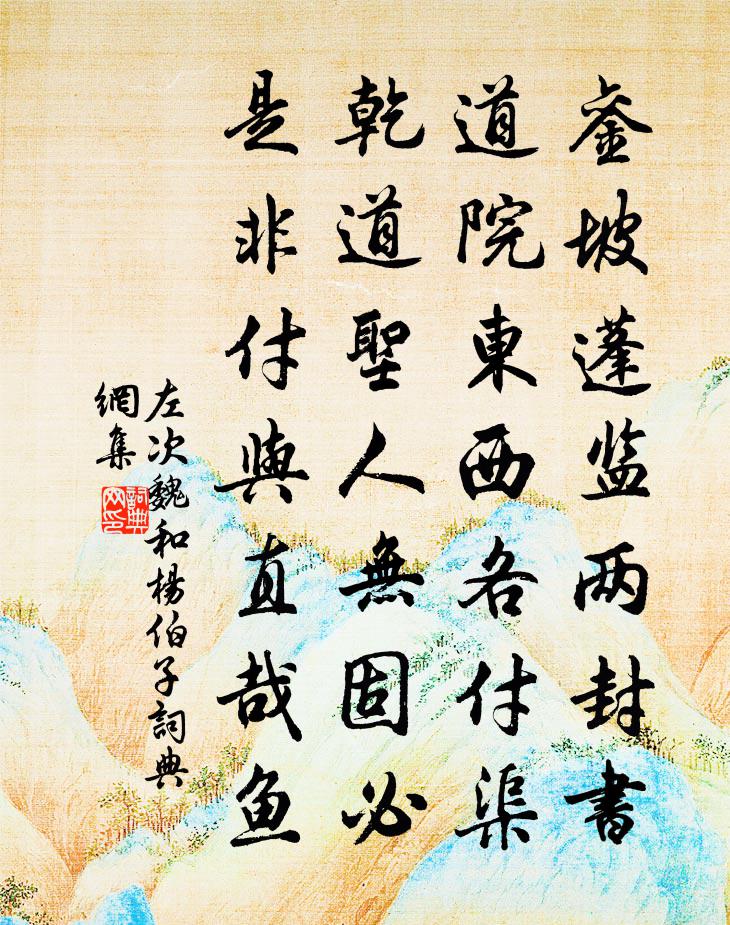 銮坡蓬监两封書
道院東西各付渠
乾道聖人無固必
是非付與直哉鱼
左次魏和楊伯子詞典
網集
詞典
网印